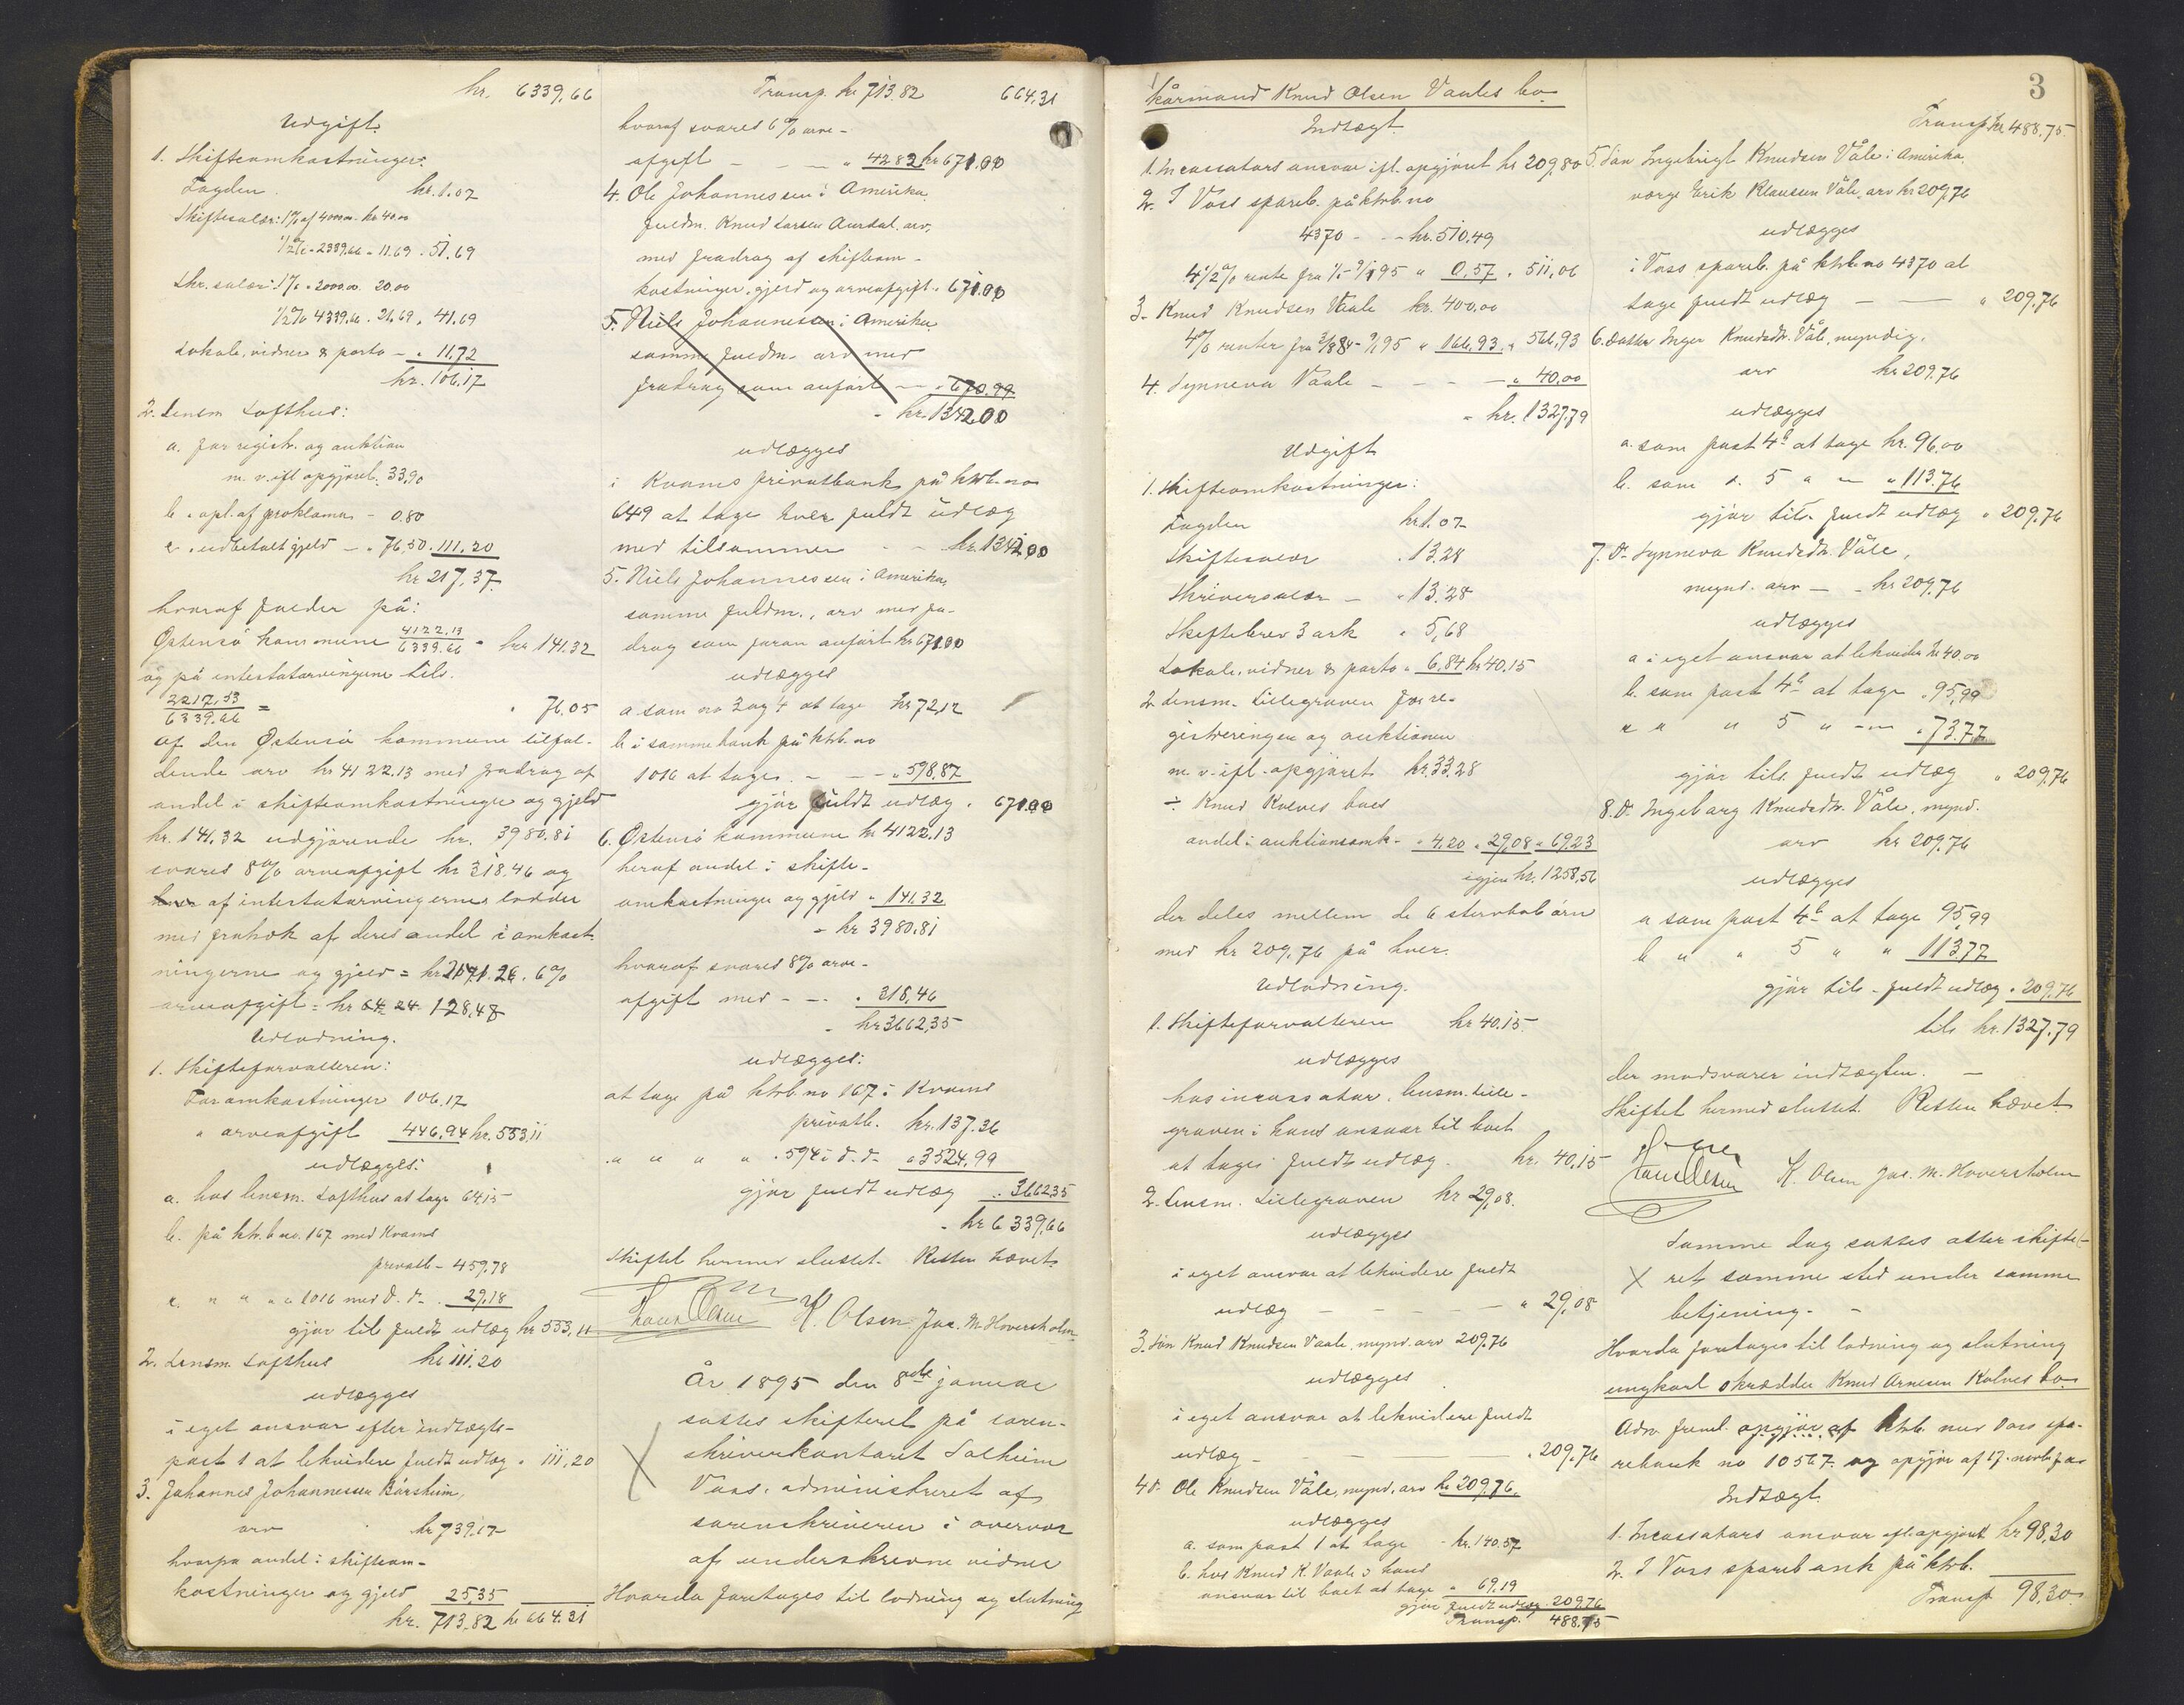 kr. 6339,66
Udgift
1. Skifteomkostninger:
Tagden kr. 1.07
Skiftesalær: 1% af 4000.00 kr 40.00
1/2% - 2339.66 - 11.69 - 51.69
Skr. salær: 1% - 2000.00. 20.00
1/2% 4339.66. 21.69. 41.69
Lokale, vidner & porto - 11,72
kr. 106.17
2. Lensm Lofthus:
a. for registr. og auktion
m. v. ifl opgjøret. 33,90
b. opl. af proklama - 0.80
c. udbetalt gjeld - 76,50. 111,20
kr 217,37.
hvoraf falder på:
Østensö kommune 4122.13/6339.66 = kr 141.32
og på intestatarvingerne tils.
2217,53/6339.66 = 76.05
af den Østensö kommune tilfal-
dende arv kr 4122.13 med fradrag af
andel i skifteomkostninger og gjeld
kr. 141.32 udgjørende kr. 3980.81
svares 8% arveafgift kr 318.46 og
af intestatarvingernes lodder
med frahok af deres andel i omkost-
ningerne og gjeld = kr 2141.26. 6%
arveafgift = kr 64 24 128,48
Udlodning.
1. Skifteforvalteren:
For omkostninger 106.17
" arveafgift 446,94 kr. 553,11
udlægges:
a. hos lensm. Lofthus at tage 64,15
b. på ktrb no. 167 med Kvams
privatb - 459.78
c. " " " " 1016 med d. d. - 29.18
gjør tils fuldt udlæg kr 553,11
2. Lensm. Lofthus kr 111.20
udlægges
i eget ansvar efter indtægts-
post 1 at likvidere fuldt udlæg " 111,20
3. Johannes Johannessen Bårsheim,
arv kr 739.17
hvorpå andel i skifteom-
kostninger og gjeld 25,35
kr. 713,82 kr 664.31
Transp. kr 713.82 664,31
hvoraf svares 6% arve-
afgift - - " 42.82 kr 671.00
4. Ole Johannessen i Amerika,
fuldm. Knud Larsen Aurdal. arv,
med fradrag af skifteom-
kostninger, gjeld og arveafgift. 671.00
5. Niels Johannessen i Amerika
samme fuldm. arv med
fradrag som anført - " 670.99
- kr. 1342.00
udlægges
i Kvams privatbank på ktrb. no
649 at tage hver fuldt udlæg
med tilsammen - - kr. 1342.00
5. Niels Johannessen i Amerika,
samme fuldm., arv med fra-
drag som foran anført kr 671.00
udlægges
a som no 3 og 4 at tage kr 72,12
b i samme bank på ktrb. no
1016 at tages - - " 598.87
gjør fuldt udlæg. 671.00
6. Østensö kommune kr 4122.13
heraf andel i skifte-
omkostninger og gjeld " 141.32
= kr 3980.81
hvoraf svares 8% arve-
afgift med - - . 318,46
- kr 3662,35
udlægges:
at tage på ktrb. no 167 i Kvams
privatb. kr. 137.36
" " " " 594 i d. d. " 3524,99
gjør fuldt udlæg . 3662.35
- kr 6339,66
Skiftet hermed sluttet. Retten hævet.
Hans Olsen K. Olsen Jac. M. Hoversholm
År 1895 den 8de januar
sattes skifteret på soren-
skriverkontoret Solheim
Voss, administreret af
sorenskriveren i overvær
af underskrevne vidner
Hvorda foretages til lodning og slutning
3
kårmand Knud Olsen Vaales bo
Indtægt
1. Incassators ansvar ifl. opgjøret kr 209,80
2. I Voss spareb. på ktrb. no
4370 - - kr. 510.49
4 1/2% rente fra 1/1-9/1 95 " 0,57. 511,06
3. Knud Knudsen Vaale kr. 400,00
4% renter fra 3/8 84 - 9/1 95 " 166,93 " 566,93
4. Synneva Vaale - - - " 40,00
= kr. 1327,79
Udgift
1. Skifteomkostninger:
Tagden kr 1.07
Skiftesalær . 13.28
Skriversalær - " 13.28
Skiftebrev 3 ark " 5,68
Lokale, vidner & porto " 6,84 kr 40.15
2. Lensm. Lillegraven for re-
gistreringen og auktionen
m. v. ifl. opgjøret kr. 33.28
÷ Knud Kolves boes
andel i auktionsomk. " 4.20 " 29,08 " 69,23
igjen kr. 1258,56
der deles mellem de 6 stervbobörn
med kr 209,76 på hver.
Udlodning.
1. Skifteforvalteren kr 40.15
udlægges
hos incassator, lensm. Lille-
graven i hans ansvar til boet
at tages fuldt udlæg. kr. 40,15
2. Lensm. Lillegraven kr 29,08.
udlægges
i eget ansvar at likvidere fuldt
udlæg - - - - " 29,08
3. Sön Knud Knudsen Vaale, mynd. arv 209.76
udlægges
i eget ansvar at likvidere fuldt
udlæg - - - . 209.76
4 d. Ole Knudsen Våle, mynd. arv kr 209.76.
udlægges
a. som post 1 at tage - kr. 140.57
b. hos Knud K. Vaale i hans
ansvar til boet at tage " 69.19
gjør fuldt udlæg . 209.76
Transp. 488.75
Transp kr 488.75
5. Sön Ingebrigt Knudsen Våle i Amerika,
værge Erik Klausen Våle, arv kr 209.76
udlægges
i Voss spareb. på ktrb. no 4370 at
tage fuldt udlæg - - " 209,76
6. Datter Inger Knudsdtr. Våle, myndig,
arv kr 209.76
udlægges
a. som post 4b at tage kr. 96.00
b. som d. 5 " - " 113.76
gjør tils. fuldt udlæg " 209.76
7. D. Synneva Knudsdtr. Våle,
mynd. arv - - kr 209.76
udlægges
a i eget ansvar at likvidere kr 40.00
b. som post 4b at tage " 95,99
c " " 5 " - " 73.77
gjør tils. fuldt udlæg " 209,76
8. D. Ingeborg Knudsdtr. Våle, mynd.
arv kr 209.76
udlægges
a som post 4b at tage 95,99
b " " 5 " " 113.77
gjør tils - fuldt udlæg . 209,76
tils kr. 1327.79
der modsvarer indtægten. -
Skiftet hermed sluttet. Retten hævet.
Hans Olsen K. Olsen Jac. M. Hoversholm
Samme dag sattes atter skifte-
ret samme sted under samme
betjening. -
Hvorda foretages til lodning og slutning
ungkarl skrædder Knud Arnesen Kolves bo
Adm. freml. opgjør af ktrb. med Voss spa-
rebank no 10567. og opgjør af 17. novb. f. a.
Indtægt
1. Incassators ansvar efl. opgjøret kr 98,30
2. I Voss sparebank på ktrb.
Transp. 98,30